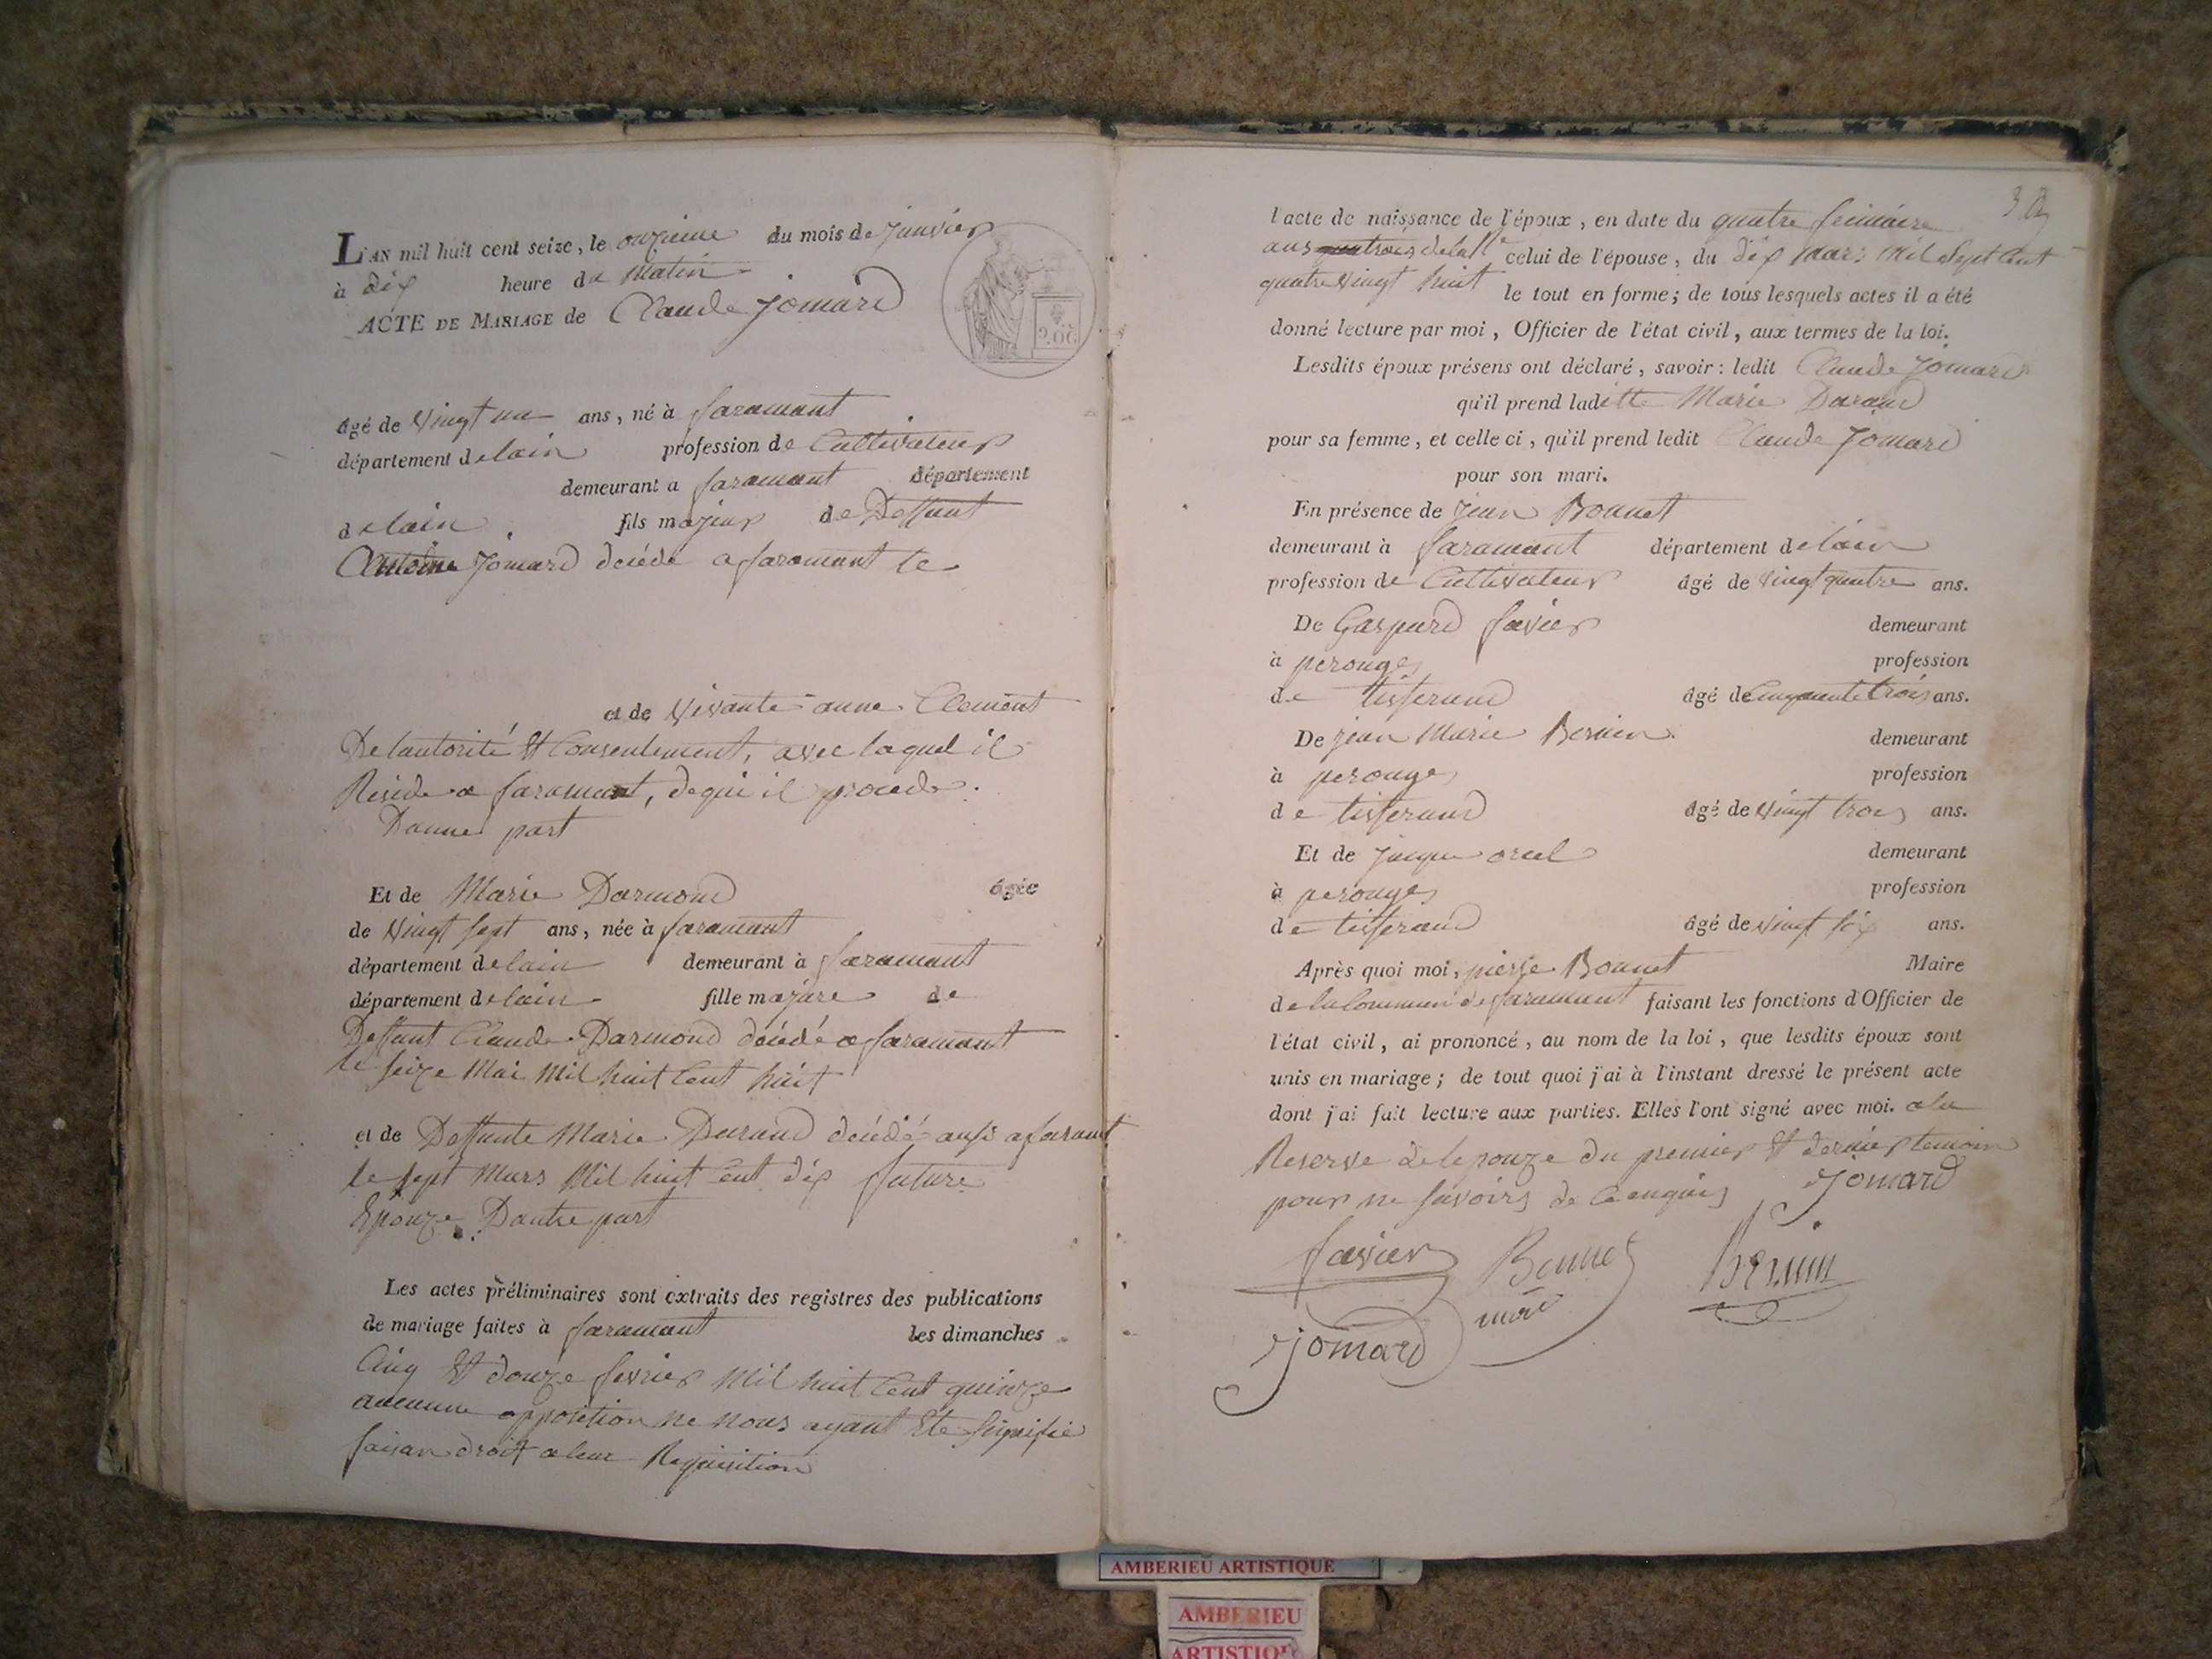 L'AN mil huit cent seize, le onzieme du mois de janvier
à dix heure du Matin
ACTE DE MARIAGE de Claude Jomard
2.00
âgé de vingt un ans, né à faramant
département delain profession de Cultivateur
demeurant a faramant département
delain fils majeur de Deffunt
Antoine Jomard décédé a faramant le
et de vivante anne Clement
De lautorité et Consentement, avec laquel il
Reside a faramant, de qui il procede.
Dunne part
Et de Marie Darmond âgée
de vingt sept ans, née à faramant
département delain demeurant à faramant
département delain fille majure de
Deffunt Claude Darmond décédé a faramant
le seize Mai Mil huit Cent huit
et de Deffunte Marie Durand décédé aussi a faramt
le sept Mars Mil huit Cent dix future
Epouze Dautre part
Les actes préliminaires sont extraits des registres des publications
de mariage faites à faramant les dimanches
Cinq et douze fevrier Mil huit Cent quinze
aucunne opposition ne nous ayant Ete signifié
faisan droit a leur Requisition
l'acte de naissance de l'époux, en date du quatre frimaire
ans de la celui de l'épouse, du dix Mars Mil Sept Cent
quatre vingt huit le tout en forme; de tous lesquels actes il a été
donné lecture par moi, Officier de l'état civil, aux termes de la loi.
Lesdits époux présens ont déclaré, savoir: ledit Claude Jomard
qu'il prend laditte Marie Darmond
pour sa femme, et celle ci, qu'il prend ledit Claude Jomard
pour son mari.
En présence de Jean Bonnet
demeurant à faramant département delain
profession de Cultivateur âgé de vingt quatre ans.
De Gaspard favier demeurant
à perouges profession
de tisserand âgé de Cinquante trois ans.
De jean Marie Bernin demeurant
à perouges profession
de tisserand âgé de vingt trois ans.
Et de jacque orcel demeurant
à perouges profession
de tisserand âgé de vingt six ans.
Après quoi moi, pierre Bonnet Maire
de la Commun de faramant faisant les fonctions d'Officier de
l'état civil, ai prononcé, au nom de la loi, que lesdits époux sont
unis en mariage; de tout quoi j'ai à l'instant dressé le présent acte
dont j'ai fait lecture aux parties. Elles l'ont signé avec moi. a la
Reserve de lepouze du premier et dernier temoin
pour ne savoir de ce enquis Jomard
favier Bonnet Bernin
maire
Jomard
AMBERIEU ARTISTIQUE
AMBERIEU
ARTISTIQUE